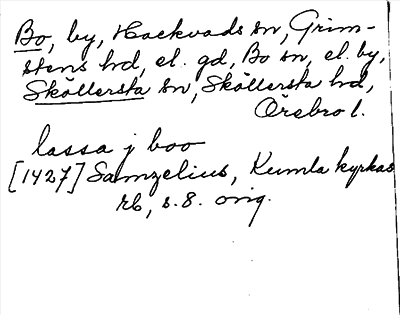 Bo, by, Hackvads sn, Grim-
stens hd, el. gd, Bo sn, el. by,
Sköllersta sn, Sköllersta hd,
Örebro l.
lassa j boo
[1427] Samzelius, Kumla kyrkas
rb, s. 8. orig.